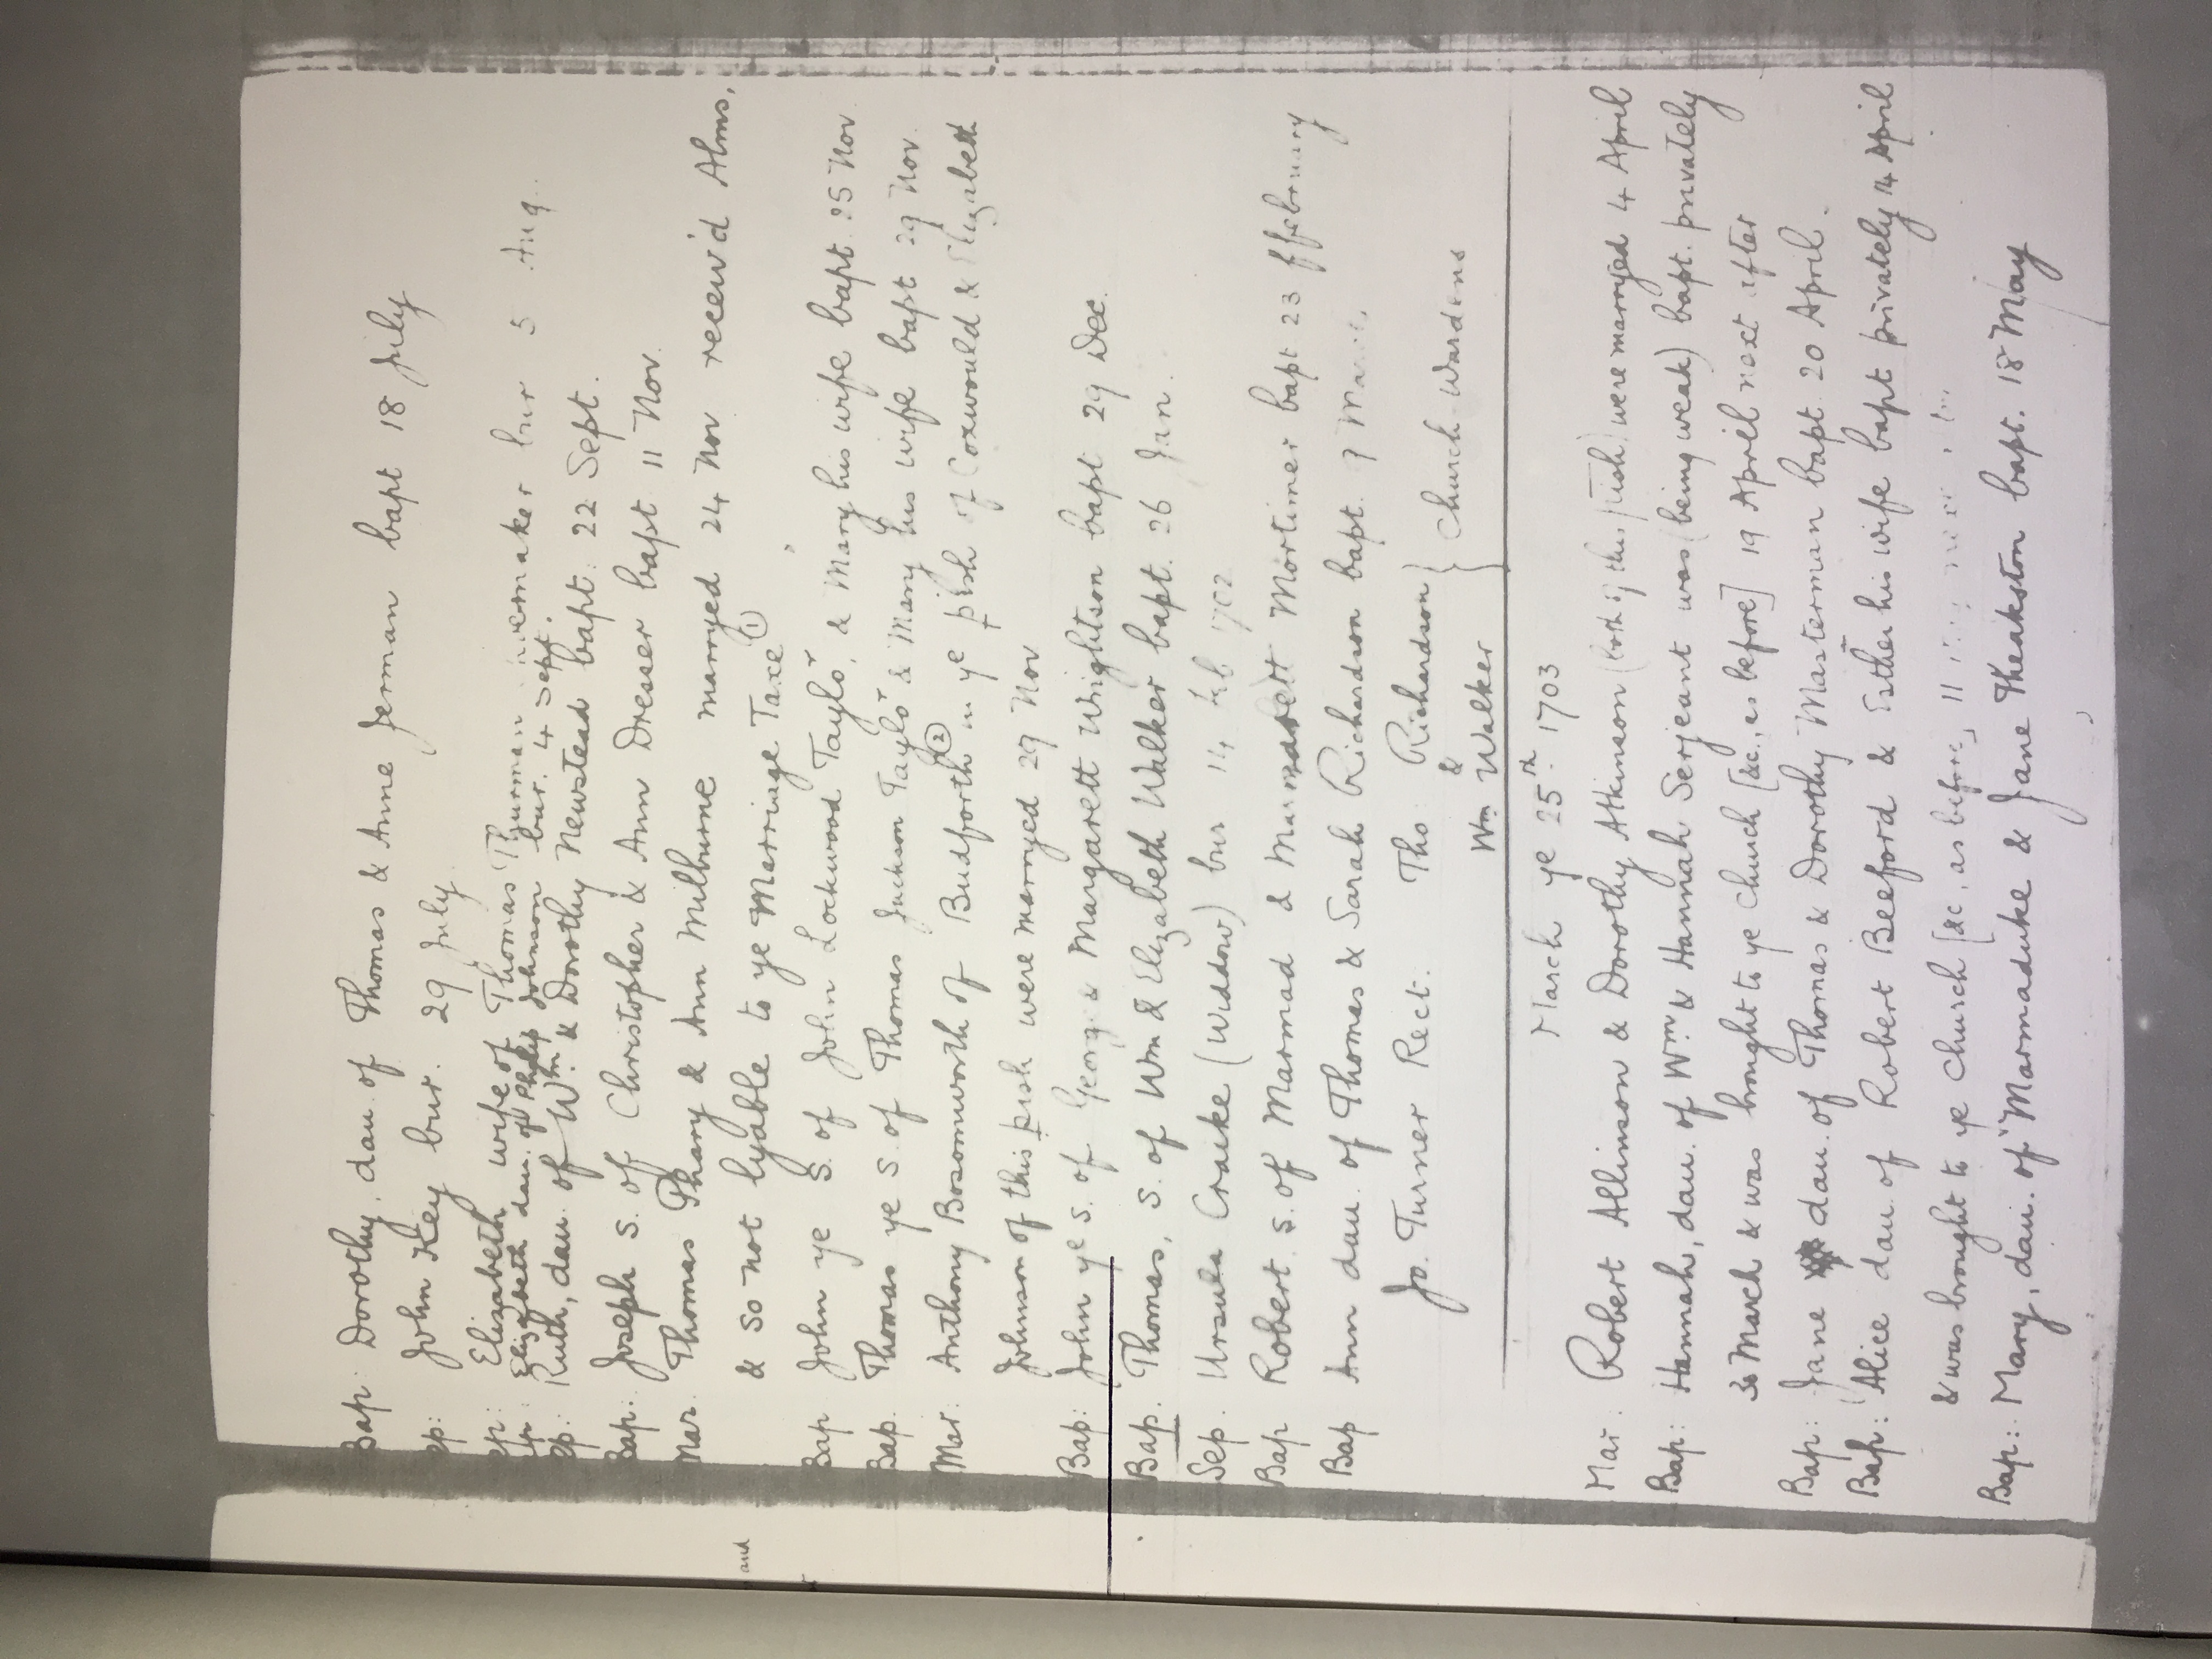 Bap: Dorothy, dau. of Thomas & Anne Jerman bapt 18 July
ep: John Key bur. 29 July
ep: Elizabeth wife of Thomas Thurman bur 5 Aug.
Elizabeth dau. of Philip Johnson bur. 4 Sept.
ep: Ruth, dau. of Wm. & Dorothy Newstead bapt. 22 Sept.
Bap: Joseph s. of Christopher & Ann Dresser bapt 11 Nov.
Mar. Thomas Thary & Ann Milburne marryed 24 Nov receiv'd Alms,
& so not lyable to ye Marriage Taxe (1)
Bap John ye s. of John Lockwood Taylor, & Mary his wife bapt. 25 Nov
Bap. Thomas ye s. of Thomas Jackson Taylor & Mary his wife bapt 29 Nov.
Mar: Anthony Bosomworth of Budforth (2) in ye p'ish of Coxwould & Elizabeth
Johnson of this p'ish were marryed 29 Nov
Bap: John ye s. of George & Margarett Wrightson bapt 29 Dec.
Bap. Thomas, s. of Wm & Elizabeth Walker bapt. 26 Jan.
Sep. Ursula Crauke (Widdow) bur 14 feb 1702
Bap Robert s. of Marmad & Margarett Mortimer bapt 23 ffebruary
Bap Ann dau. of Thomas & Sarah Richardson bapt. 7
Jo. Turner Rect. Tho. Richardson } Church Wardens
&
Wm Walker
March ye 25th 1703
Mar. Robert Allinson & Dorothy Atkinson (both of this p'ish) were marryed 4 April
Bap: Hannah, dau. of Wm. & Hannah Serjeant was (being weak) bapt. privately
30 March & was brought to ye Church [&c., as before] 19 April next after
Bap: Jane dau. of Thomas & Dorothy Masterman bapt. 20 April.
Bap: Alice dau. of Robert Beeford & Esther his wife bapt privately 14 April
& was brought to ye Church [&c, as before] 11
Bap: Mary, dau. of "Marmaduke & Jane Theakston bapt. 18 May
and